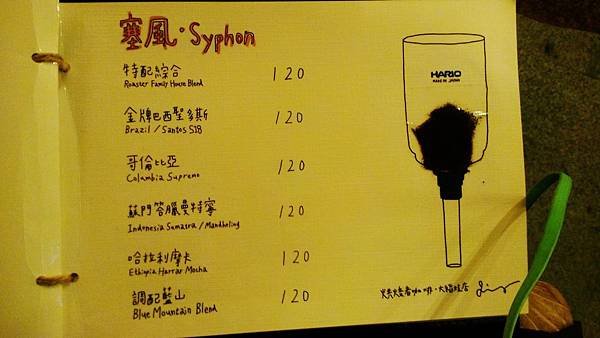 塞風·Syphon
特配綜合 120
Roaster Family House Blend
金牌巴西聖多斯 120
Brazil / Santos S18
哥倫比亞 120
Columbia Supremo
蘇門答臘曼特寧 120
Indonesia Sumatra / Mandheling
哈拉利摩卡 120
Ethiopia Harrar Mocha
調配藍山 120
Blue Mountain Blend
HARIO
MADE IN JAPAN
烘焙者咖啡·大貓熊店